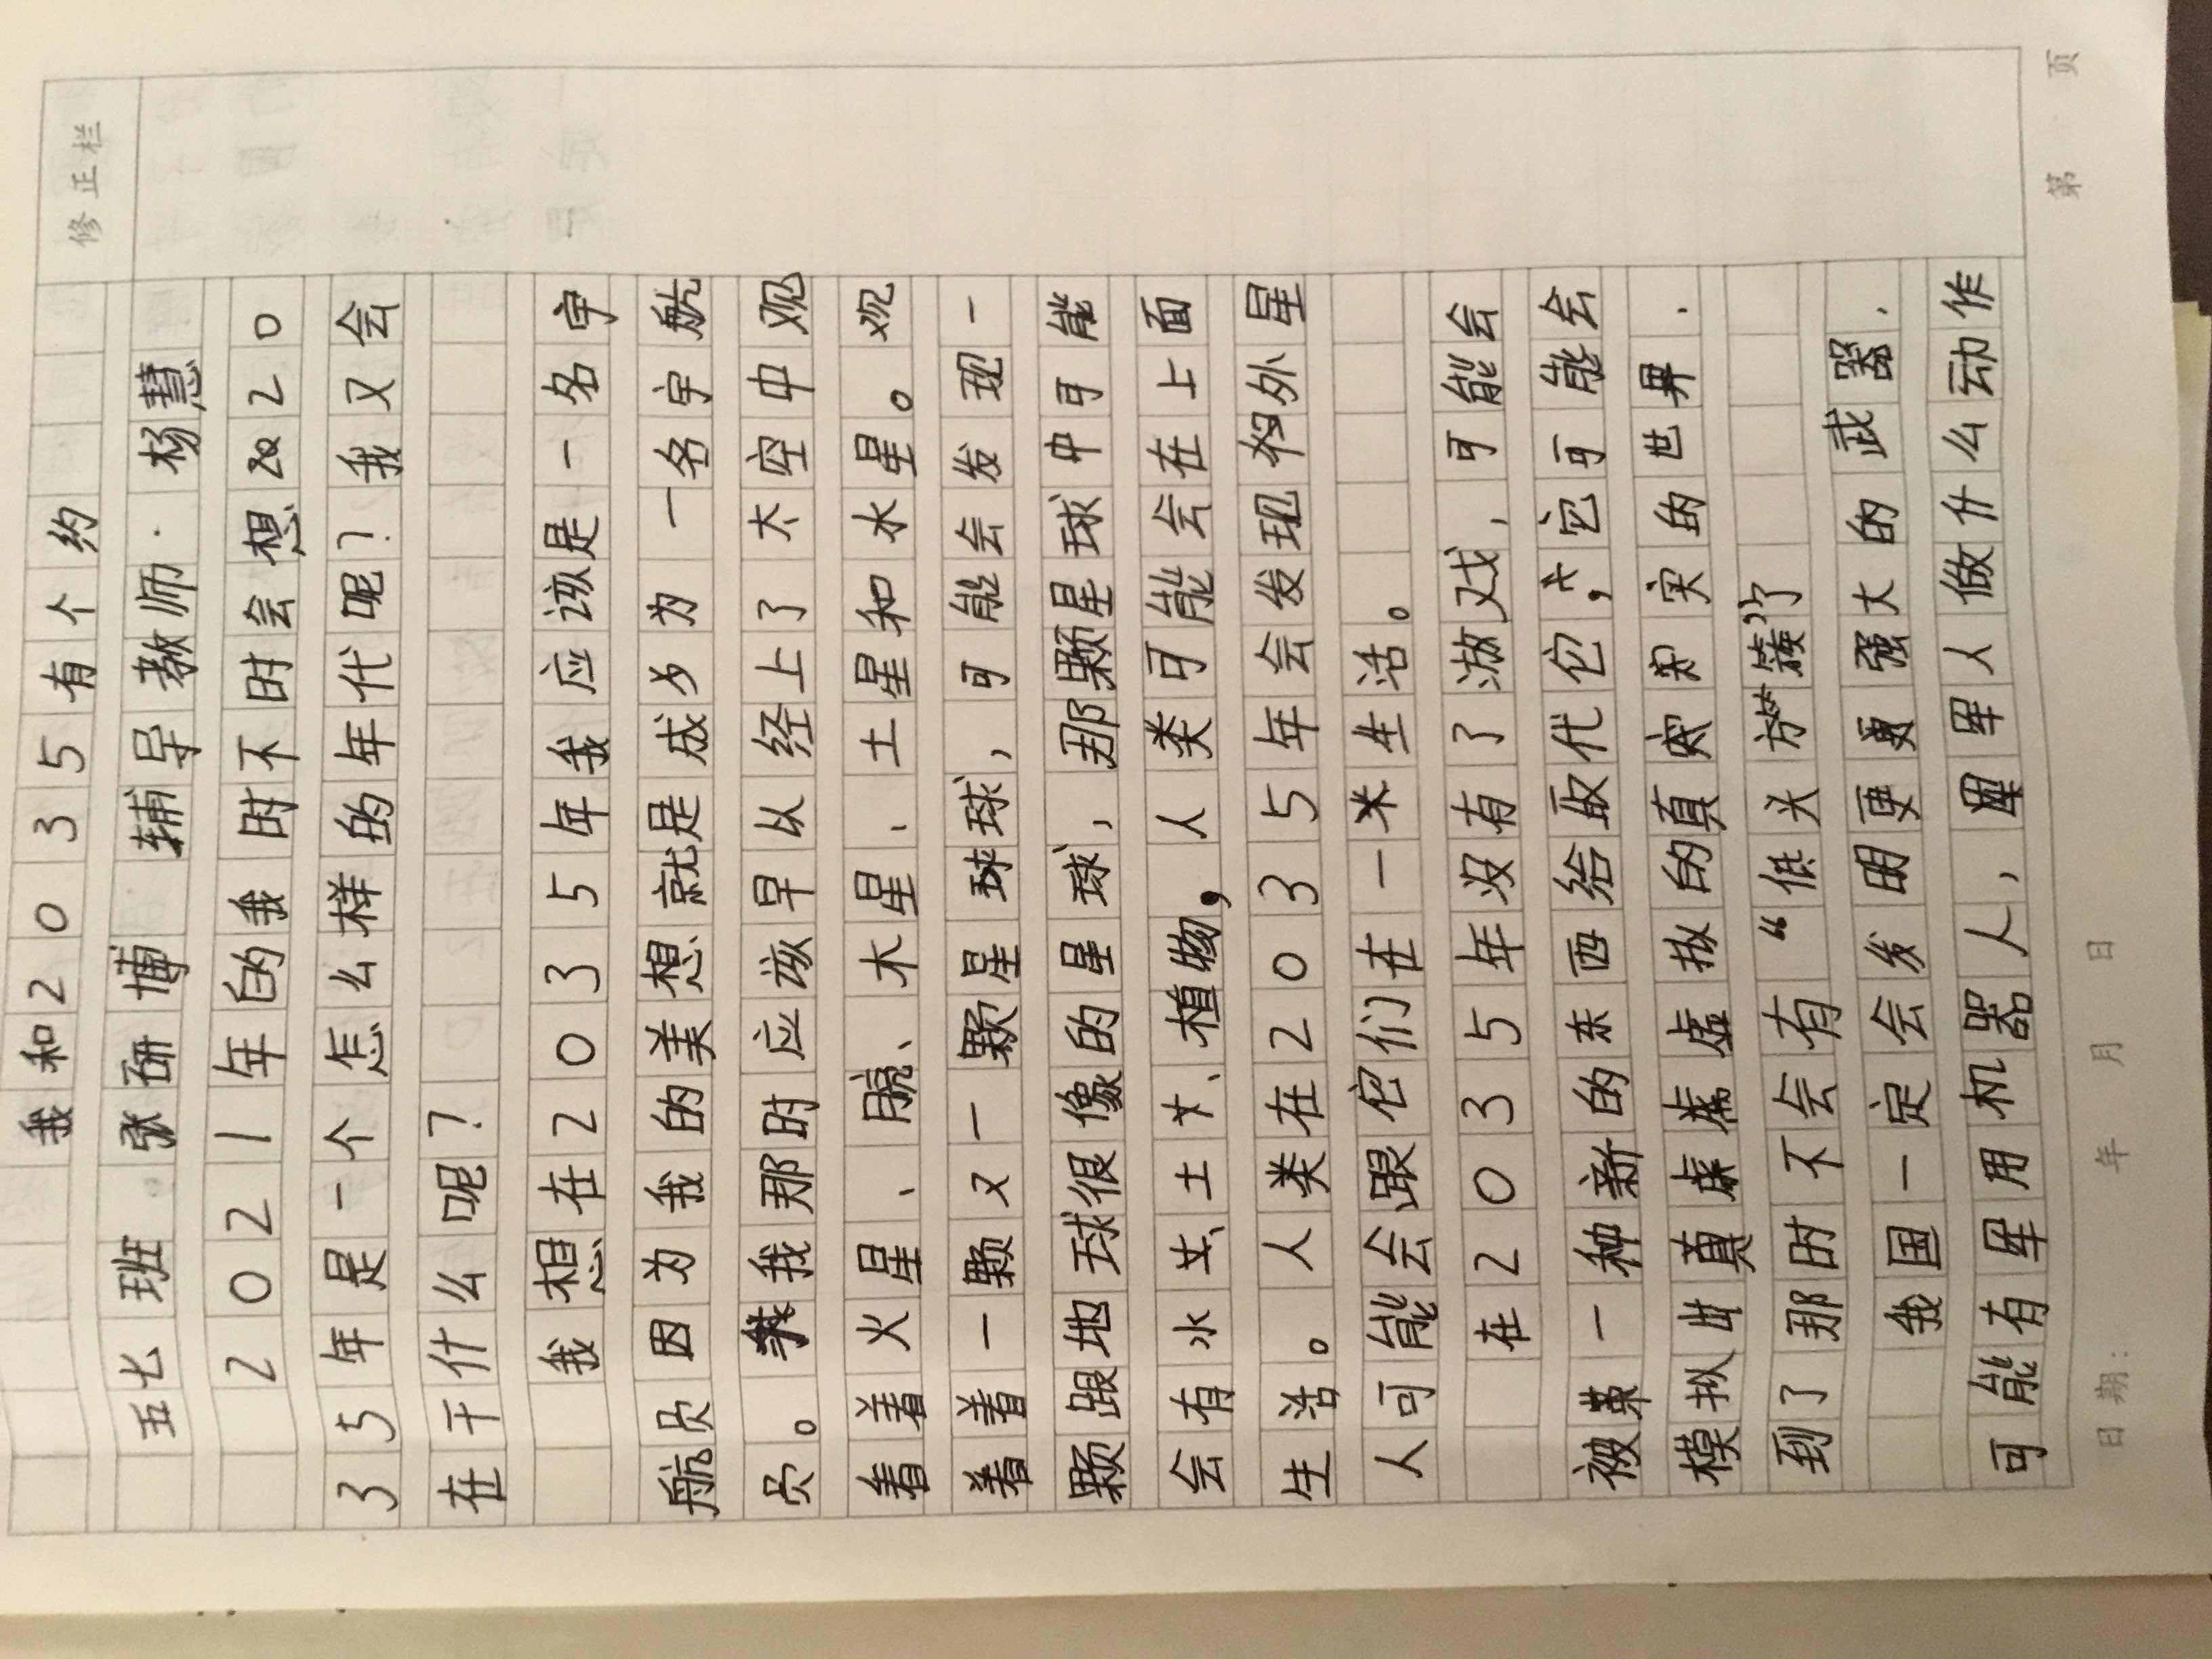 修正栏
我和2035有个约
五七班 张研博 辅导教师 杨慧
2021年的我时不时会想2020
35年是一个怎么样的年代呢？我又会
在干什么呢？
我想在2035年我应该是一名宇
航员因为我的美想就是成为一名宇航
员。我那时应该早以经上了太空中观
着着火星、木星、土星和水星。观
着着一颗又一颗星球球，可能会发现一
颗跟地球很像的星球，那颗星球中可能
会有水土、植物，人类可能会在上面
生活。人类在2035年会发现外星
人可能会跟它们在一米生活。
在2035年没有了游戏，可能会
被一种新的东西给取代它，它可能会
模拟出真虚虚拟的真实的世界.
到了那时不会有“低头族”了
我国一定会发明更强大的武器.
可能有军用机器人，军人做什么动作
日期： 年 月 日
第 页